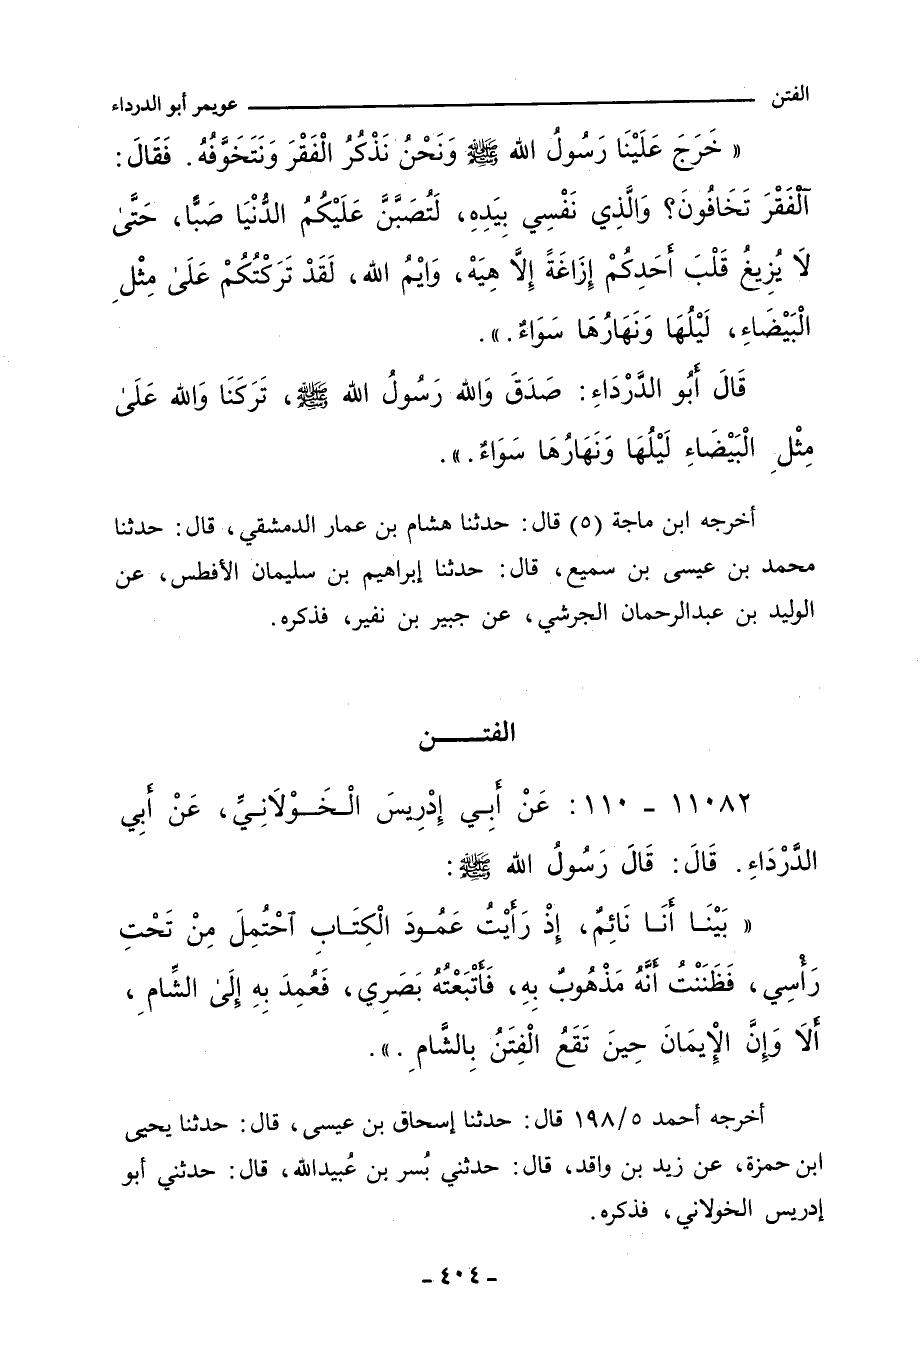 الفتن ـــــــــــ عويمر أبو الدرداء
« خَرَجَ عَلَيْنَا رَسُولُ الله ﷺ وَنَحْنُ نَذْكُرُ الْفَقْرَ وَنَتَخَوَّفُهُ. فَقَالَ:
آلْفَقْرَ تَخَافُونَ؟ وَالَّذِي نَفْسِي بِيَدِهِ، لَتُصَبَّنَّ عَلَيْكُمُ الدُّنْيَا صَبًّا، حَتَّىٰ
لَا يُزِيغُ قَلْبَ أَحَدِكُمْ إِزَاغَةً إِلَّا هِيَهْ، وَايْمُ الله، لَقَدْ تَرَكْتُكُمْ عَلَىٰ مِثْلِ
الْبَيْضَاءِ، لَيْلُهَا وَنَهَارُهَا سَوَاءٌ.».
قَالَ أَبُو الدَّرْدَاءِ: صَدَقَ وَالله رَسُولُ الله ﷺ، تَرَكَنَا وَالله عَلَىٰ
مِثْلِ الْبَيْضَاءِ لَيْلُهَا وَنَهَارُهَا سَوَاءٌ.».
أخرجه ابن ماجة (٥) قال: حدثنا هشام بن عمار الدمشقي، قال: حدثنا
محمد بن عيسى بن سميع، قال: حدثنا إبراهيم بن سليمان الأفطس، عن
الوليد بن عبدالرحمان الجرشي، عن جبير بن نفير، فذكره.
الفتـــــن
١١٠٨٢ - ١١٠: عَنْ أَبِي إِدْرِيسَ الْخَوْلَانِيِّ، عَنْ أَبِي
الدَّرْدَاءِ. قَالَ: قَالَ رَسُولُ الله ﷺ:
« بَيْنَا أَنَا نَائِمٌ، إِذْ رَأَيْتُ عَمُودَ الْكِتَابِ آحْتُمِلَ مِنْ تَحْتِ
رَأْسِي، فَظَنَنْتُ أَنَّهُ مَذْهُوبٌ بِهِ، فَأَتْبَعْتُهُ بَصَرِي، فَعُمِدَ بِهِ إِلَىٰ الشَّامِ،
أَلَا وَإِنَّ الْإِيمَانَ حِينَ تَقَعُ الْفِتَنُ بِالشَّامِ.».
أخرجه أحمد ١٩٨/٥ قال: حدثنا إسحاق بن عيسى، قال: حدثنا يحيى
ابن حمزة، عن زيد بن واقد، قال: حدثني بُسر بن عُبيدالله، قال: حدثني أبو
إدريس الخولاني، فذكره.
- ٤٠٤ -